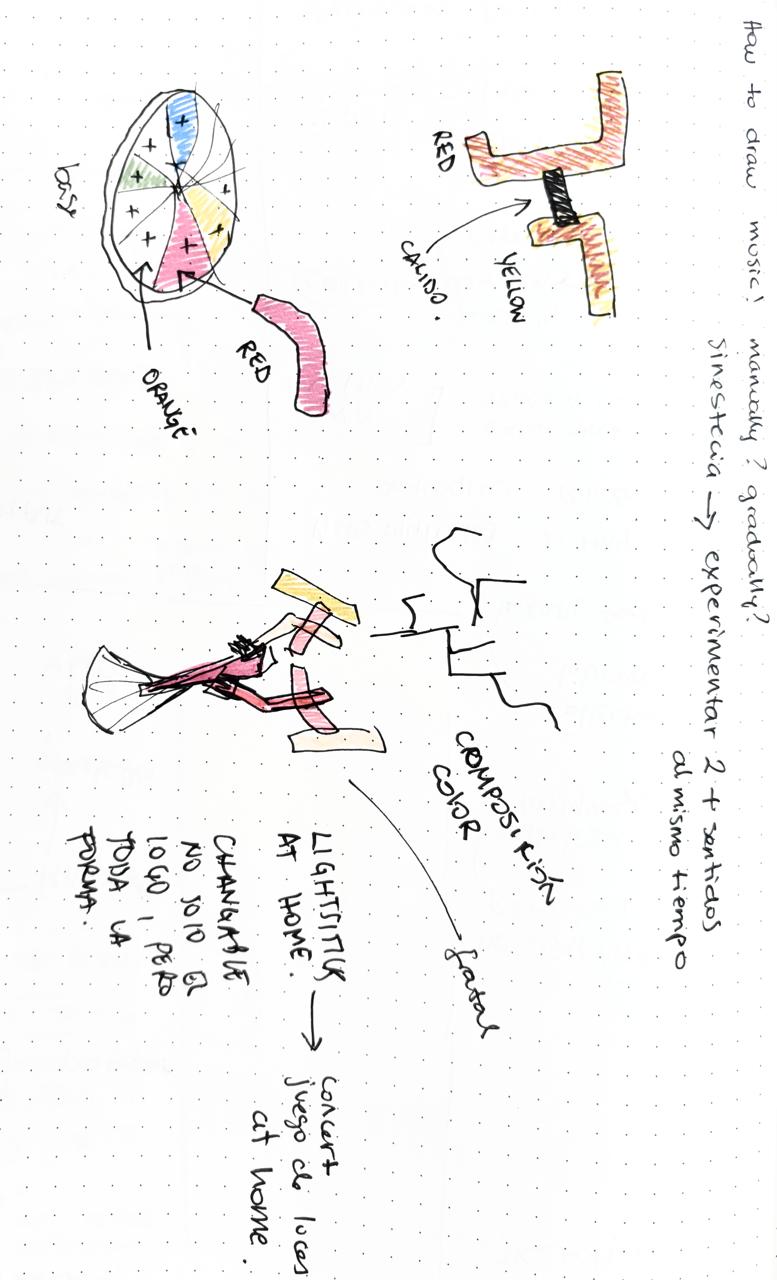 How to draw music! manually? gradually?
sinestecia → experimentar 2 + sentidos
al mismo tiempo
YELLOW
RED
CALIDO.
COMPOSICIÓN
COLOR
fratal
RED
ORANGE
base
LIGHTSITICKS
AT HOME. → concert
juego de luces
at home.
CHANGABLE
NO SOLO EL
LOGO, PERO
TODA LA
FORMA.